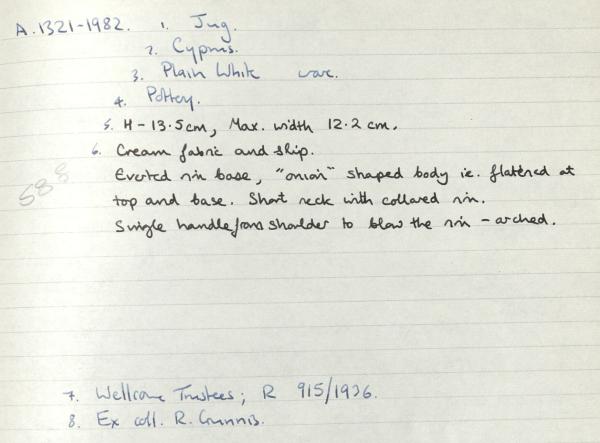 A.1321-1982. 1. Jug.
2. Cyprus.
3. Plain White ware.
4. Pottery.
5. H - 13.5cm, Max. width 12.2 cm.
6. Cream fabric and slip.
Everted rim base, "onion" shaped body ie. flattened at
588
top and base. Short neck with collared rim.
Single handle from shoulder to blow the rim - arched.
7. Wellcome Trustees; R 915/1936.
8. Ex coll. R. Gunnis.